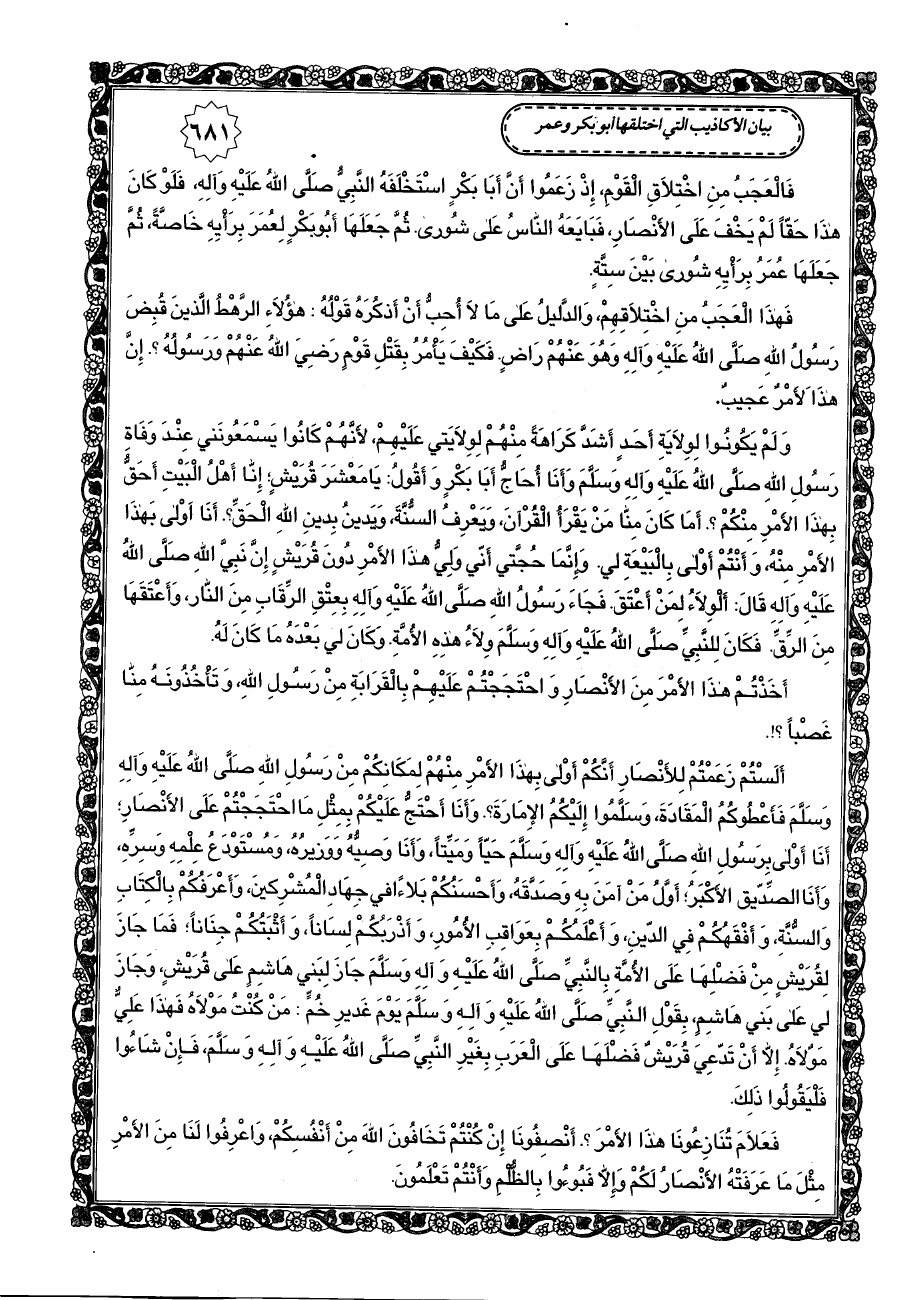 بيان الأكاذيب التي اختلقها أبو بكر وعمر
٦٨١
فَالْعَجَبُ مِنِ اخْتِلَاقِ الْقَوْمِ، إِذْ زَعَمُوا أَنَّ أَبَا بَكْرٍ اسْتَخْلَفَهُ النَّبِيُّ صَلَّى اللهُ عَلَيْهِ وَآلِهِ، فَلَوْ كَانَ
هٰذَا حَقّاً لَمْ يَخْفَ عَلَى الأَنْصَارِ، فَبَايَعَهُ النَّاسُ عَلىٰ شُورىٰ. ثُمَّ جَعَلَهَا أَبُوبَكْرٍ لِعُمَرَ بِرَأْيِهِ خَاصَّةً، ثُمَّ
جَعَلَهَا عُمَرُ بِرَأْيِهِ شُورىٰ بَيْنَ سِتَّةٍ.
فَهٰذَا الْعَجَبُ مِنِ اخْتِلَاقِهِمْ، وَالدَّلِيلُ عَلىٰ مَا لاَ أُحِبُّ أَنْ أَذْكُرَهُ قَوْلُهُ : هٰؤُلاَءِ الرَّهْطُ الَّذِينَ قُبِضَ
رَسُولُ اللهِ صَلَّى اللهُ عَلَيْهِ وَآلِهِ وَهُوَ عَنْهُمْ رَاضٍ. فَكَيْفَ يَأْمُرُ بِقَتْلِ قَوْمٍ رَضِيَ اللهُ عَنْهُمْ وَرَسُولُهُ ؟. إِنَّ
هٰذَا لَأَمْرٌ عَجِيبٌ.
وَ لَمْ يَكُونُوا لِوِلاَيَةِ أَحَدٍ أَشَدَّ كَرَاهَةً مِنْهُمْ لِوِلاَيَتِي عَلَيْهِمْ، لأَنَّهُمْ كَانُوا يَسْمَعُونَنِي عِنْدَ وَفَاةِ
رَسُولِ اللهِ صَلَّى اللهُ عَلَيْهِ وَآلِهِ وَسَلَّمَ وَأَنَا أُحَاجُّ أَبَا بَكْرٍ وَ أَقُولُ: يَامَعْشَرَ قُرَيْشٍ؛ إِنَّا أَهْلَ الْبَيْتِ أَحَقُّ
بِهٰذَا الأَمْرِ مِنْكُمْ ؟. أَمَا كَانَ مِنَّا مَنْ يَقْرَأُ الْقُرْآنَ، وَيَعْرِفُ السُّنَّةَ، وَيَدِينُ بِدِينِ اللهِ الْحَقِّ؟. أَنَا أَوْلىٰ بِهٰذَا
الأَمْرِ مِنْهُ، وَ أَنْتُمْ أَوْلىٰ بِالْبَيْعَةِ لِي. وَإِنَّمَا حُجَّتِي أَنِّي وَلِيُّ هٰذَا الأَمْرِ دُونَ قُرَيْشٍ إِنَّ نَبِيَّ اللهِ صَلَّى اللهُ
عَلَيْهِ وَآلِهِ قَالَ: أَلْوِلاَءُ لِمَنْ أَعْتَقَ. فَجَاءَ رَسُولُ اللهِ صَلَّى اللهُ عَلَيْهِ وَآلِهِ بِعِتْقِ الرِّقَابِ مِنَ النَّارِ، وَأَعْتَقَهَا
مِنَ الرِّقِّ. فَكَانَ لِلنَّبِيِّ صَلَّى اللهُ عَلَيْهِ وَآلِهِ وَسَلَّمَ وِلاَءُ هٰذِهِ الأُمَّةِ. وَكَانَ لِي بَعْدَهُ مَا كَانَ لَهُ.
أَخَذْتُمْ هٰذَا الأَمْرَ مِنَ الأَنْصَارِ وَ احْتَجَجْتُمْ عَلَيْهِمْ بِالْقَرَابَةِ مِنْ رَسُولِ اللهِ، وَ تَأْخُذُونَهُ مِنَّا
غَصْباً ؟!.
أَلَسْتُمْ زَعَمْتُمْ لِلأَنْصَارِ أَنَّكُمْ أَوْلىٰ بِهٰذَا الأَمْرِ مِنْهُمْ لِمَكَانِكُمْ مِنْ رَسُولِ اللهِ صَلَّى اللهُ عَلَيْهِ وَآلِهِ
وَسَلَّمَ فَأَعْطُوكُمُ الْمَقَادَةَ، وَسَلَّمُوا إِلَيْكُمُ الإِمَارَةَ؟. وَأَنَا أَحْتَجُّ عَلَيْكُمْ بِمِثْلِ مَا احْتَجَجْتُمْ عَلَى الأَنْصَارِ؛
أَنَا أَوْلىٰ بِرَسُولِ اللهِ صَلَّى اللهُ عَلَيْهِ وَآلِهِ وَسَلَّمَ حَيّاً وَمَيِّتاً، وَأَنَا وَصِيُّهُ وَوَزِيرُهُ، وَمُسْتَوْدَعُ عِلْمِهِ وَسِرِّهِ،
وَأَنَا الصِّدِّيقُ الأَكْبَرُ؛ أَوَّلُ مَنْ آمَنَ بِهِ وَصَدَّقَهُ، وَأَحْسَنُكُمْ بَلاَءً افِي جِهَادِ الْمُشْرِكِينَ، وَأَعْرَفُكُمْ بِالْكِتَابِ
وَالسُّنَّةِ، وَ أَفْقَهُكُمْ فِي الدِّينِ، وَ أَعْلَمُكُمْ بِعَوَاقِبِ الأُمُورِ، وَ أَذْرَبُكُمْ لِسَاناً، وَ أَثْبَتُكُمْ جَنَاناً؛ فَمَا جَازَ
لِقُرَيْشٍ مِنْ فَضْلِهَا عَلَى الأُمَّةِ بِالنَّبِيِّ صَلَّى اللهُ عَلَيْهِ وَ آلِهِ وَسَلَّمَ جَازَ لِبَنِي هَاشِمٍ عَلىٰ قُرَيْشٍ، وَجَازَ
لِي عَلىٰ بَنِي هَاشِمٍ، بِقَوْلِ النَّبِيِّ صَلَّى اللهُ عَلَيْهِ وَ آلِهِ وَ سَلَّمَ يَوْمَ غَدِيرِ خُمٍّ : مَنْ كُنْتُ مَوْلاَهُ فَهٰذَا عَلِيٌّ
مَوْلاَهُ. إِلاَّ أَنْ تَدَّعِيَ قُرَيْشٌ فَضْلَهَا عَلَى الْعَرَبِ بِغَيْرِ النَّبِيِّ صَلَّى اللهُ عَلَيْهِ وَ آلِهِ وَ سَلَّمَ، فَإِنْ شَاءُوا
فَلْيَقُولُوا ذَلِكَ.
فَعَلاَمَ تُنَازِعُونَا هٰذَا الأَمْرَ ؟. أَنْصِفُونَا إِنْ كُنْتُمْ تَخَافُونَ اللهَ مِنْ أَنْفُسِكُمْ، وَاعْرِفُوا لَنَا مِنَ الأَمْرِ
مِثْلَ مَا عَرَفَتْهُ الأَنْصَارُ لَكُمْ وَإِلاَّ فَبُوءُوا بِالظُّلْمِ وَأَنْتُمْ تَعْلَمُونَ.